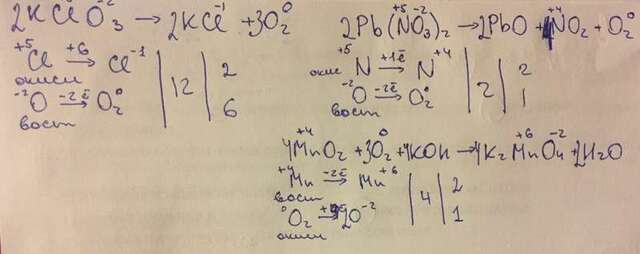 2KClO₃ → 2KCl⁻¹ + 3O₂⁰
⁺⁵Cl +6 → Cl⁻¹ | 12 | 2
окисл
⁻²O −2ē → O₂⁰ | 6
восст
2Pb(⁺⁵NO₃⁻²)₂ → 2PbO + 4⁺⁴NO₂ + O₂⁰
окис ⁺⁵N +1ē → N⁺⁴ | 2 | 2
⁻²O −2ē → O₂⁰ | 1
вост
⁺⁴MnO₂ + O₂⁰ + KOH → K₂⁺⁶MnO₄⁻² + 2H₂O
⁺⁴Mn −2ē → Mn⁺⁶ | 4 | 2
вост
⁰O₂ → 2O⁻² | 1
окисл